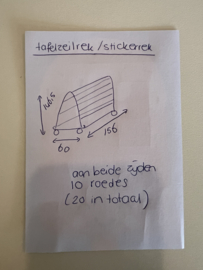 tafelzeilrek/stickerrek
60
156
aan beide zijden
10 roedes
(20 in totaal)